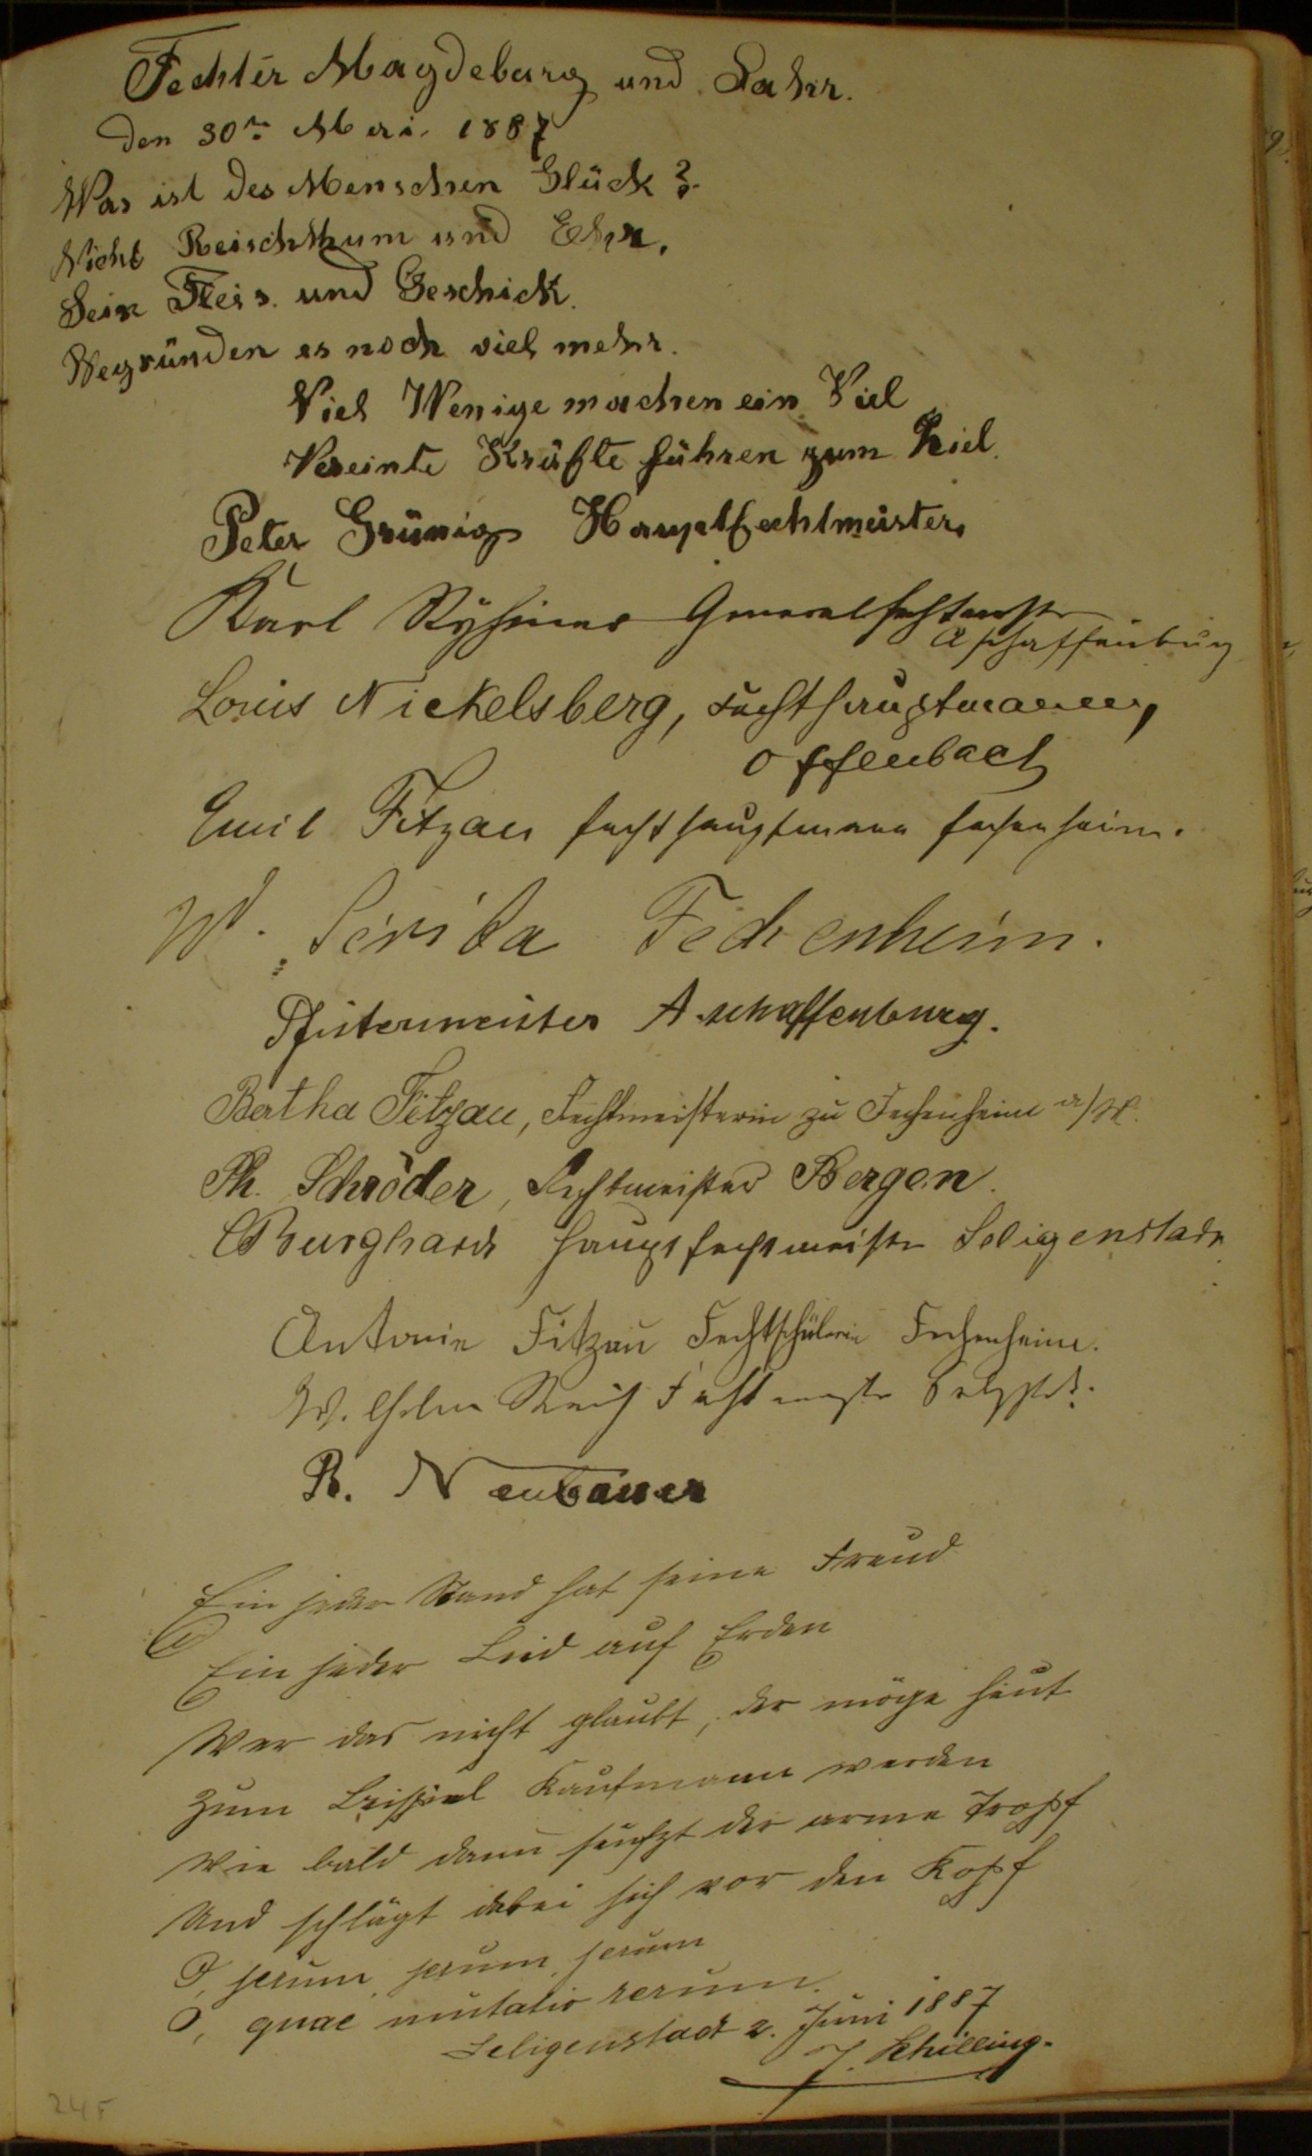 Fechter Magdeburg und Lahr.
den 30ten Mai. 1887
Was ist des Menschen Glück?
Nicht Reischthum und Ehr.
Sein Fleis. und Geschick.
Begründen es noch viel mehr.
Viel Wenige machen ein Viel
Vereinte Kräfte führen zum Ziel.
Peter Grünig Hauptfechtmeister
Karl Ryhiner Generalfechtmstr
Aschaffenburg
Louis Nickelsberg, Fechthauptmann,
Offenbach
Emil Fitzau Fechthauptmann Fechenheim.
W. Fechenheim.
Pfistermeister Aschaffenburg.
Bertha Fitzau, Fechtmeisterin zu Fechenheim a/M.
Ph. Schröder, Fechtmeister Bergen.
CBurghard Hauptfechtmeister Seligenstadt
Antonie Fitzau Fechtschülerin Fechenheim.
Wilhelm
R. Neubauer
Ein jeder Stand hat seine Freud
Ein jeder Leid auf Erden
Wer das nicht glaubt, der möge heut
Zum Beispiel Kaufmann werden
Wie bald dann seufzt der arme Tropf
Und schlägt dabei sich vor den Kopf
O, jerum, jerum, jerum
O, quae mutatio rerum.
Seligenstadt 2. Juni 1887
J. Schilling.
245